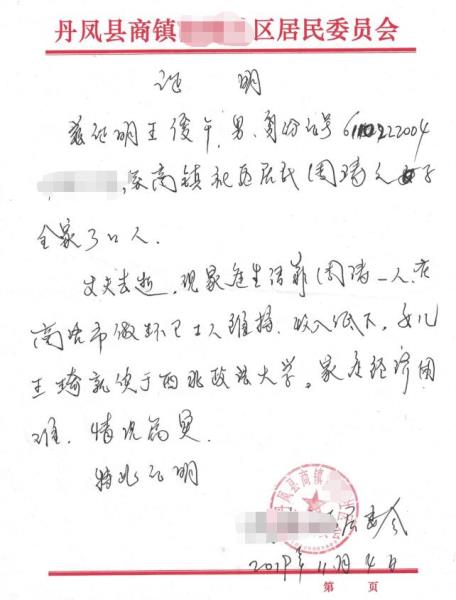 丹凤县商镇 区居民委员会
证 明
兹证明王俊午,男,身份证号 6 222004
,系商镇社区居民周琦之 子
全家3口人.
丈夫去逝,现家庭生活靠周琦一人在
商洛市做环卫工人维持,收入低下,女儿
王琦就读于西北政法大学。家庭经济困
难.情况属实.
特此证明
丹凤县商镇
居委会
2019年11月4日
第 页